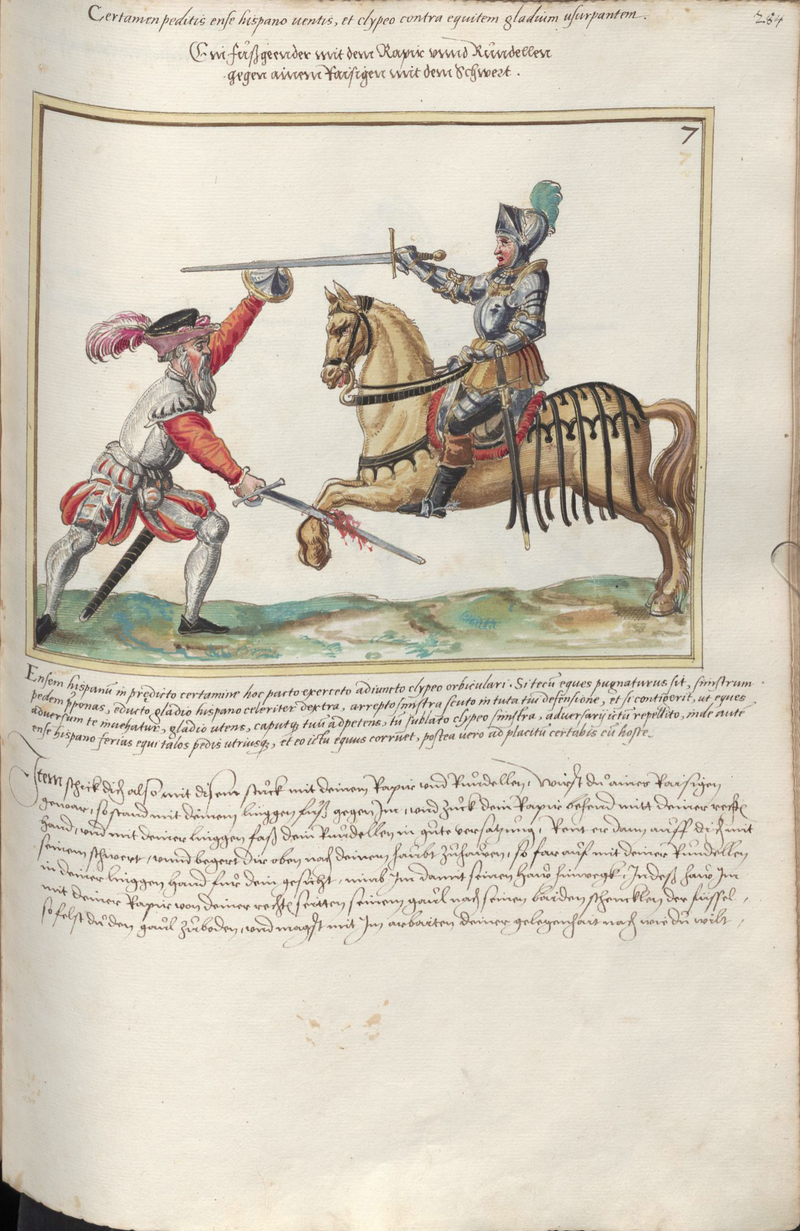 Certamen peditis ense hispano uentis, et clypeo contra equitem gladium usurpantem.
284
Ein fůßgeender mit dem Rapir vnnd Rundellen
gegen ainem Raisigen mit dem Schwert.
7
Ensem hispanũ in prędicto certamine hoc pacto exerceto adiuncto clypeo orbiculari. Si tecũ eques pugnaturus sit, sinistrum
pedem pponas, educto gladio hispano celeriter dextra, arrepto sinistra scuto in tuta tui defensione, et si contigerit, ut eques
aduersum te inuehatur, gladio utens, caputq; tuũ adpetens, tu sublato clypeo sinistra, aduersarij ictũ repellito, inde aũt
ense hispano ferias equi talos pedis utriusq;, et eo ictu equus corruet, postea uero ad placitũ certabis cũ hoste.
Item schick dich also mit disem stuck mit deinen Rapir vnd Rundellen, Wirst du aines Raisigen
gewar, so stand mit deinem linggen fuß gegen Im, vnd zuck dein Rapir behend mitt deiner recht
hand, vnd mit deiner linggen faß dein Rundellen in gute versatzung, Rent er dann auff dich mit
seinem schwert, vnnd begert dir oben nach deinem haubt zuhawen, so far auf mit deiner Rundellen
in deiner linggen hand für dein gesicht, nimb Im damit seinen haw hinwegk, Indeß haw Im
mit deiner Rapir von deiner recht seitten seinem gaul nach seinen baiden schencklen der füssel,
so felst du den gaul zu boden, vnd magst mit Im arbaiten deiner gelegenhait nach wie du wilt,